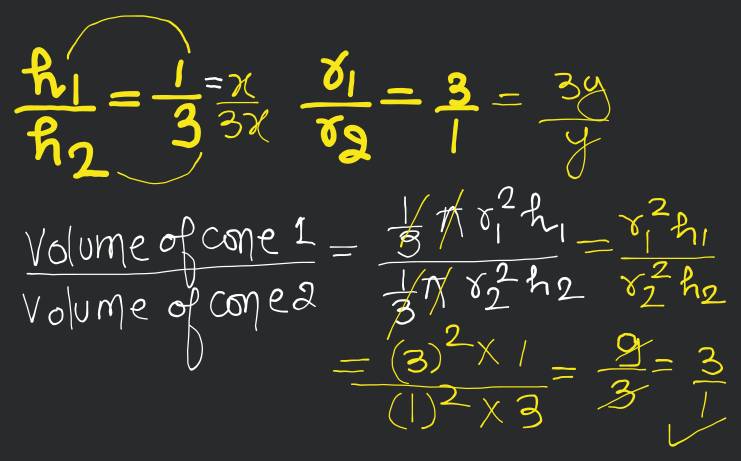 h₁/h₂ = 1/3 = x/3x   r₁/r₂ = 3/1 = 3y/y
Volume of cone 1 / Volume of cone 2 = 1/3 π r₁² h₁ / 1/3 π r₂² h₂ = r₁² h₁ / r₂² h₂
= (3)² × 1 / (1)² × 3 = 9/3 = 3/1 ✓